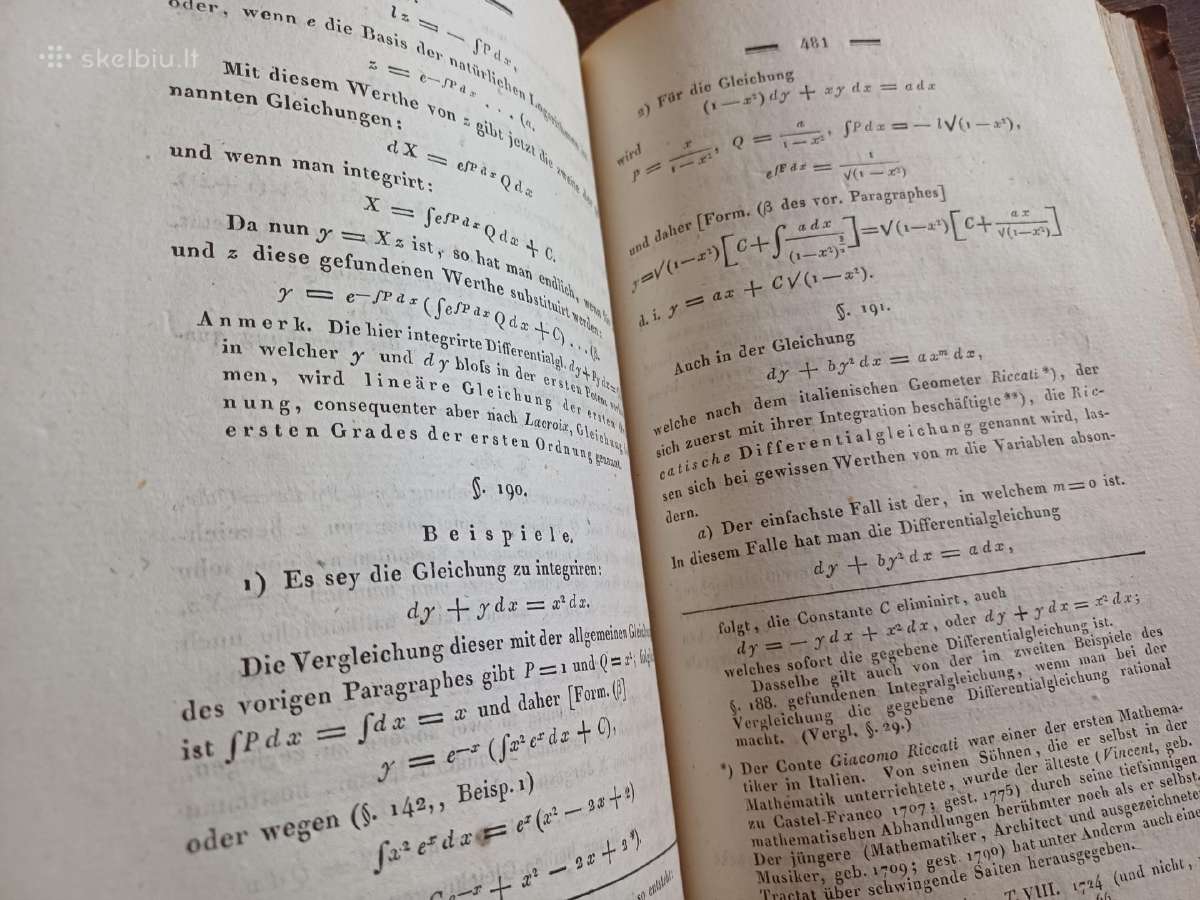 skelbiu.lt
l z = − ∫P dx,
oder, wenn e die Basis der natürlichen Logarithmen
z = e−∫P dx . . (α.
Mit diesem Werthe von z gibt jetzt die zweite der
nannten Gleichungen:
dX = e∫P dx Q dx
und wenn man integrirt:
X = ∫e∫P dx Q dx + C.
Da nun y = Xz ist, so hat man endlich, wenn für
und z diese gefundenen Werthe substituirt werden:
y = e−∫P dx (∫e∫P dx Q dx + C) . . (β.
Anmerk. Die hier integrirte Differentialgl. dy + Py dx =
in welcher y und dy bloſs in der ersten Potenz
men, wird lineäre Gleichung der ersten
nung, consequenter aber nach Lacroix, Gleichung
ersten Grades der ersten Ordnung genannt.
§. 190.
Beispiele.
1) Es sey die Gleichung zu integriren:
dy + y dx = x² dx.
Die Vergleichung dieser mit der allgemeinen
des vorigen Paragraphes gibt P = 1 und Q = x²;
ist ∫P dx = ∫dx = x und daher [Form. (β]
y = e−x (∫x² ex dx + C),
oder wegen (§. 142,, Beisp. 1)
∫x² ex dx = ex (x² − 2x + 2)
C e−x + x² − 2x + 2*).
so entsteht:
481
2) Für die Gleichung
(1 − x²) dy + xy dx = a dx
wird
P = x/(1 − x²), Q = a/(1 − x²), ∫P dx = − l√(1 − x²),
e∫P dx = 1/√(1 − x²)
und daher [Form. (β des vor. Paragraphes]
y = √(1−x²) [C + ∫ a dx/(1−x²)^(3/2)] = √(1−x²) [C + ax/√(1−x²)]
d. i. y = ax + C√(1 − x²).
§. 191.
Auch in der Gleichung
dy + by² dx = axᵐ dx,
welche nach dem italienischen Geometer Riccati*), der
sich zuerst mit ihrer Integration beschäftigte**), die Ric-
catische Differentialgleichung genannt wird, las-
sen sich bei gewissen Werthen von m die Variablen abson-
dern.
a) Der einfachste Fall ist der, in welchem m = 0 ist.
In diesem Falle hat man die Differentialgleichung
dy + by² dx = a dx,
folgt, die Constante C eliminirt, auch
dy = − y dx + x² dx, oder dy + y dx = x² dx;
welches sofort die gegebene Differentialgleichung ist.
Dasselbe gilt auch von der im zweiten Beispiele des
§. 188. gefundenen Integralgleichung, wenn man bei der
Vergleichung die gegebene Differentialgleichung rational
macht. (Vergl. §. 29.)
*) Der Conte Giacomo Riccati war einer der ersten Mathema-
tiker in Italien. Von seinen Söhnen, die er selbst in der
Mathematik unterrichtete, wurde der älteste (Vincent, geb.
zu Castel-Franco 1707; gest. 1775) durch seine tiefsinnigen
mathematischen Abhandlungen berühmter noch als er selbst.
Der jüngere (Mathematiker, Architect und ausgezeichneter
Musiker, geb. 1709; gest. 1790) hat unter Anderm auch eine
Tractat über schwingende Saiten herausgegeben.
T. VIII. 1724 (und nicht,